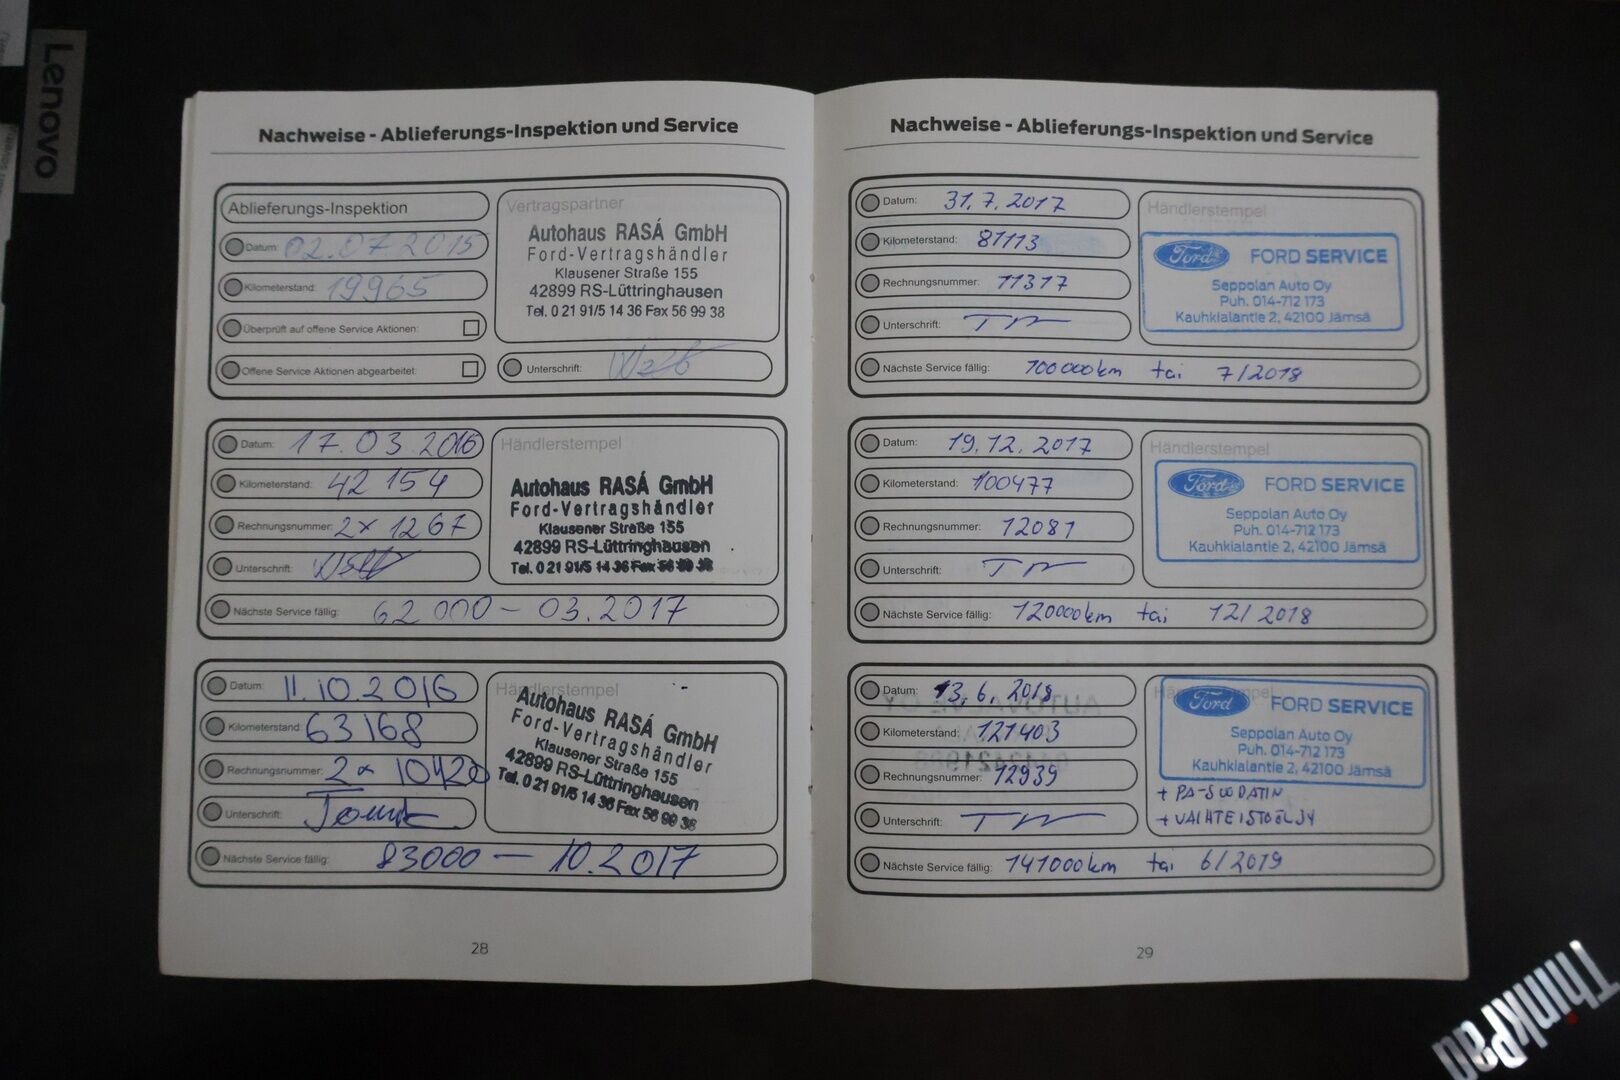 Lenovo
Nachweise - Ablieferungs-Inspektion und Service
Ablieferungs-Inspektion
Datum: 02.07.2015
Kilometerstand: 19965
Überprüft auf offene Service Aktionen:
Offene Service Aktionen abgearbeitet:
Vertragspartner
Autohaus RASÁ GmbH
Ford-Vertragshändler
Klausener Straße 155
42899 RS-Lüttringhausen
Tel. 0 21 91/5 14 36 Fax 56 99 38
Unterschrift:
Datum: 17.03.2016
Kilometerstand: 42 154
Rechnungsnummer: 2x 1267
Unterschrift:
Händlerstempel
Autohaus RASÁ GmbH
Ford-Vertragshändler
Klausener Straße 155
42899 RS-Lüttringhausen
Tel. 0 21 91/5 14 36 Fax 56 99 38
Nächste Service fällig: 62 000 - 03.2017
Datum: 11.10.2016
Kilometerstand: 63168
Rechnungsnummer: 2x 10420
Unterschrift:
Händlerstempel
Autohaus RASÁ GmbH
Ford-Vertragshändler
Klausener Straße 155
42899 RS-Lüttringhausen
Tel. 0 21 91/5 14 36 Fax 56 99 38
Nächste Service fällig: 83000 - 10.2017
28
Nachweise - Ablieferungs-Inspektion und Service
Datum: 31.7.2017
Kilometerstand: 81113
Rechnungsnummer: 11317
Unterschrift:
Händlerstempel
Ford FORD SERVICE
Seppolan Auto Oy
Puh. 014-712 173
Kauhkialantie 2, 42100 Jämsä
Nächste Service fällig: 100000km tai 7/2018
Datum: 19.12.2017
Kilometerstand: 100477
Rechnungsnummer: 12081
Unterschrift:
Händlerstempel
Ford FORD SERVICE
Seppolan Auto Oy
Puh. 014-712 173
Kauhkialantie 2, 42100 Jämsä
Nächste Service fällig: 120000km tai 12/2018
Datum: 13.6.2018
Kilometerstand: 121403
Rechnungsnummer: 12939
Unterschrift:
Ford FORD SERVICE
Seppolan Auto Oy
Puh. 014-712 173
Kauhkialantie 2, 42100 Jämsä
+ PA-SUODATIN
+ VAIHTEISTOÖLJY
Nächste Service fällig: 141000km tai 6/2019
29
ThinkPad